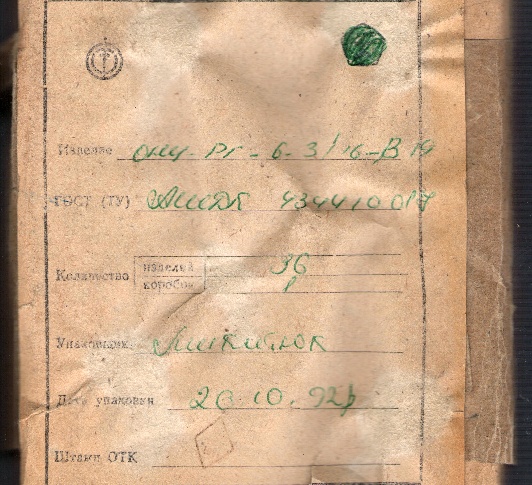 Изделие ОНЦ-РГ-6-3/16-В 14
ГОСТ (ТУ) 434410 017
Количество изделий 36
коробок 1
Упаковщик
Дата упаковки 20.10.92г
Штамп ОТК